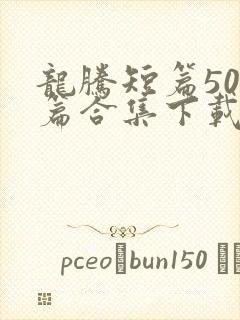 龍騰短篇50
篇合集下載
pceo bun150